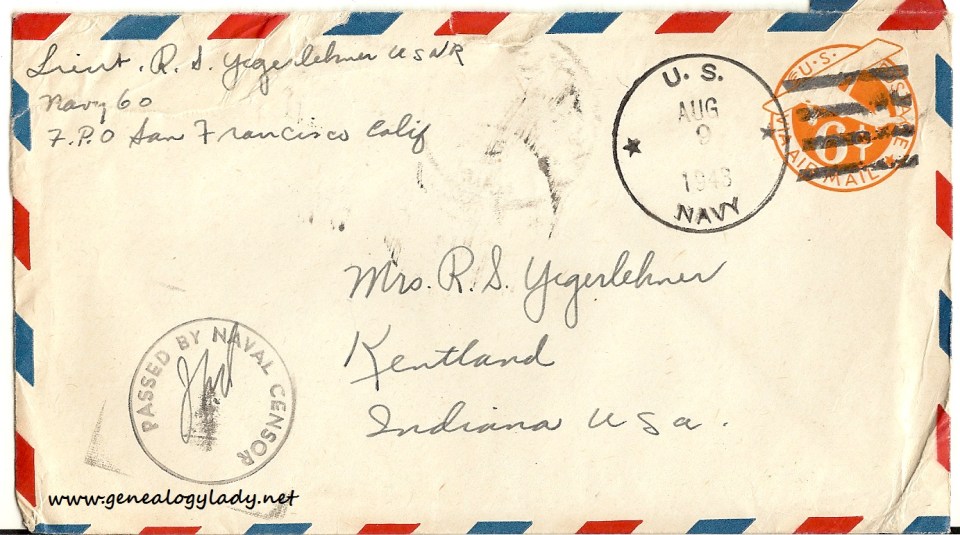 Lieut. R. S. Yegerlehner USNR
Navy 60
F.P.O San Francisco Calif
U. S.
AUG
9
1943
NAVY
U.S.
6¢
VIA AIR MAIL
Mrs. R. S. Yegerlehner
Kentland
Indiana U S a.
PASSED BY NAVAL CENSOR
www.genealogylady.net